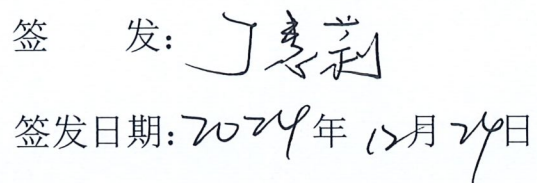 签　　发：丁惠莉
签发日期：2024年12月24日